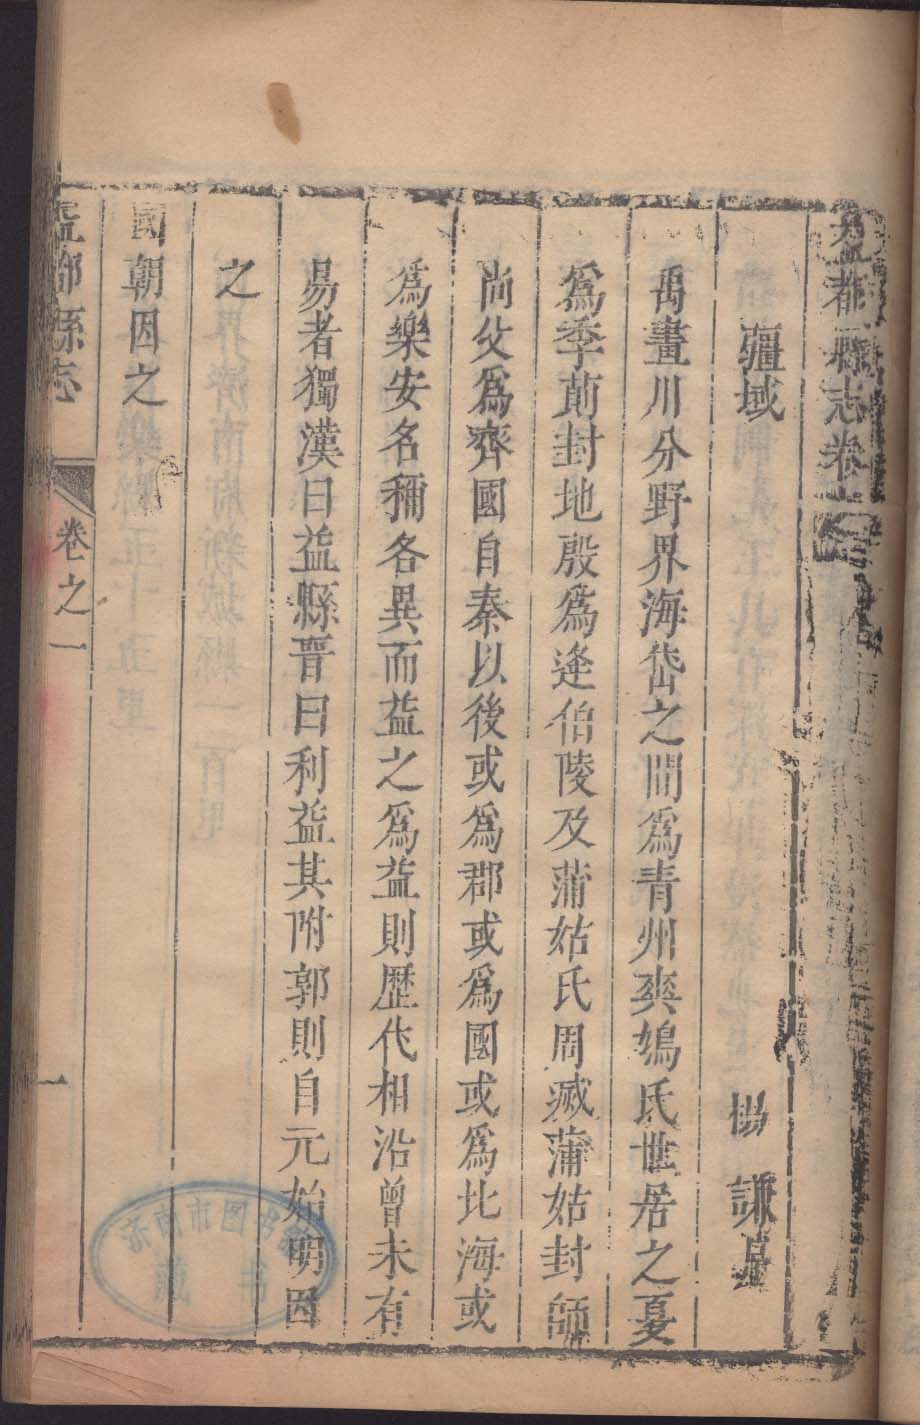 益都縣志卷
疆域
楊 謙
禹畫川分野界海岱之間爲青州爽鳩氏世居之夏
爲季萴封地殷爲逄伯陵及蒲姑氏周滅蒲姑封師
尚父爲齊國自秦以後或爲郡或爲國或爲北海或
爲樂安名稱各異而益之爲益則歷代相沿曾未有
易者獨漢曰益縣晉曰利益其附郭則自元始明因
之
國朝因之
益都縣志
卷之一
一
济南市图书馆
藏书